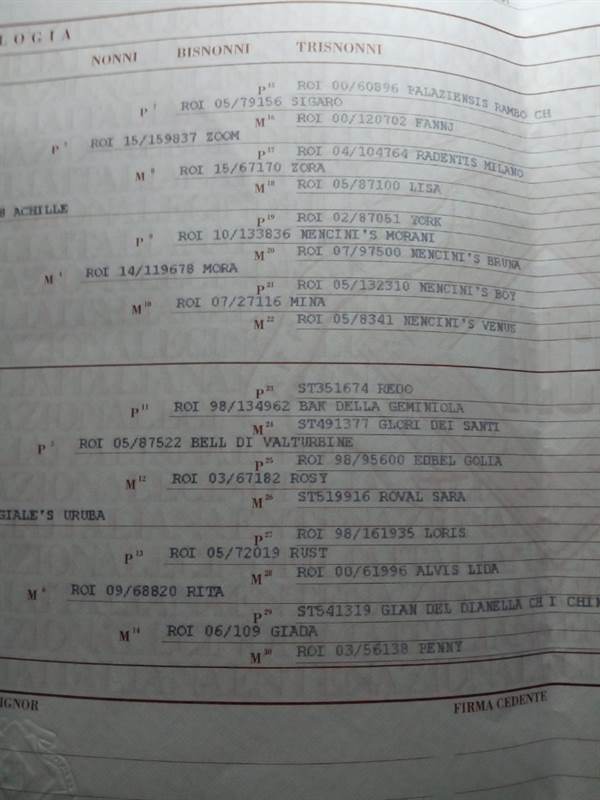 LOGIA
NONNI BISNONNI TRISNONNI
P 15 ROI 00/60896 PALAZIENSIS RAMBO CH
P 7 ROI 05/79156 SIGARO
M 16 ROI 00/120702 FANNJ
P 3 ROI 15/159837 ZOOM
P 17 ROI 04/104764 RADENTIS MILANO
M 8 ROI 15/67170 ZORA
M 18 ROI 05/87100 LISA
ACHILLE
P 19 ROI 02/87051 YORK
P 9 ROI 10/133836 NENCINI'S MORANI
M 20 ROI 07/97500 NENCINI'S BRUNA
M 4 ROI 14/119678 MORA
P 21 ROI 05/132310 NENCINI'S BOY
M 10 ROI 07/27116 MINA
M 22 ROI 05/8341 NENCINI'S VENUS
P 23 ST351674 REDO
P 11 ROI 98/134962 BAK DELLA GEMINIOLA
M 24 ST491377 GLORI DEI SANTI
P 5 ROI 05/87522 BELL DI VALTURBINE
P 25 ROI 98/95600 EDBEL GOLIA
M 12 ROI 03/67182 ROSY
M 26 ST519916 ROVAL SARA
GIALE'S URUBA
P 27 ROI 98/161935 LORIS
P 13 ROI 05/72019 RUST
M 28 ROI 00/61996 ALVIS LIDA
M 6 ROI 09/68820 RITA
P 29 ST541319 GIAN DEL DIANELLA CH I CH IN
M 14 ROI 06/109 GIADA
M 30 ROI 03/56138 PENNY
IGNOR FIRMA CEDENTE